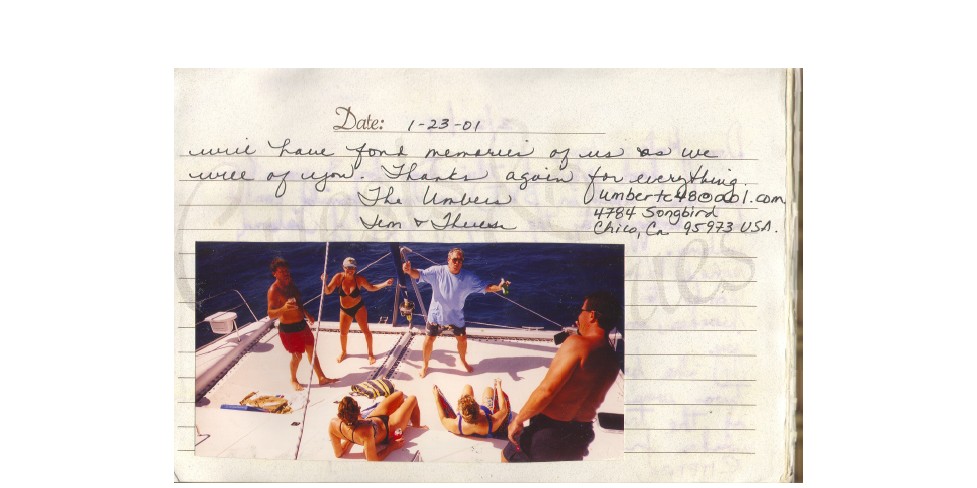 Date: 1-23-01
will have fond memories of us as we
will of you. Thanks again for everything.
The Umbers
umbertc48@aol.com
Tem & Therese
4784 Songbird
Chico, Ca 95973 USA.